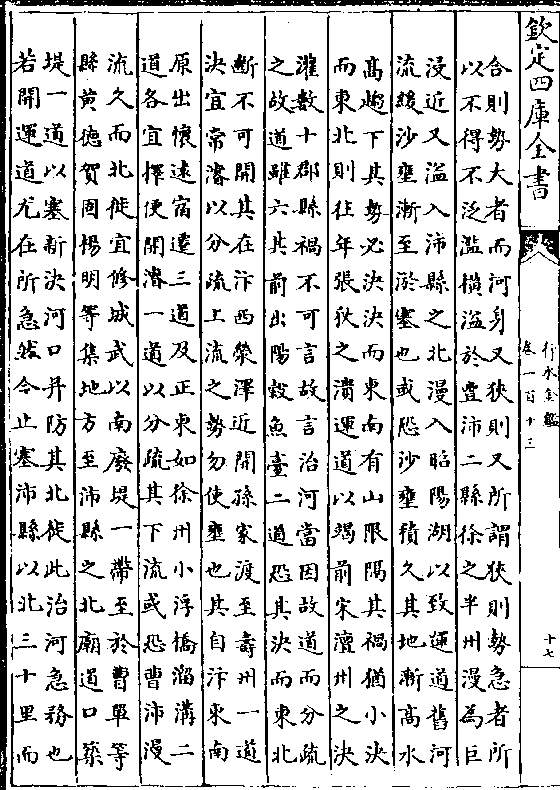 欽定四庫全書
行水金鑑
卷一百十三
十七
合則勢大者而河身又狹則又所謂狹則勢急者所
以不得不泛濫橫溢於豊沛二縣徐之半州漫為巨
浸近又溢入沛縣之北漫入昭陽湖以致運道舊河
流緩沙壅漸至淤塞也或恐沙壅積久其地漸高水
高趨下其勢必決決而東南有山限隔其禍猶小決
而東北則往年張秋之潰運道以竭前宋澶州之決
灌數十郡縣禍不可言故言治河當因故道而分疏
之故道雖六其前出陽穀魚臺二道恐其決而東北
斷不可開其在汴西滎澤近開孫家渡至壽州一道
決宜常濬以分疏上流之勢勿使壅也其自汴東南
原出懷遠宿遷三道及正東如徐州小浮橋溜溝二
道各宜擇便開濬一道以分疏其下流或恐曹沛漫
流久而北徙宜修城武以南廢堤一帶至於曹單等
縣黃德賀固楊明等集地方至沛縣之北廟道口築
堤一道以塞新決河口并防其北徙此治河急務也
若開運道尤在所急然令止塞沛縣以北三十里而